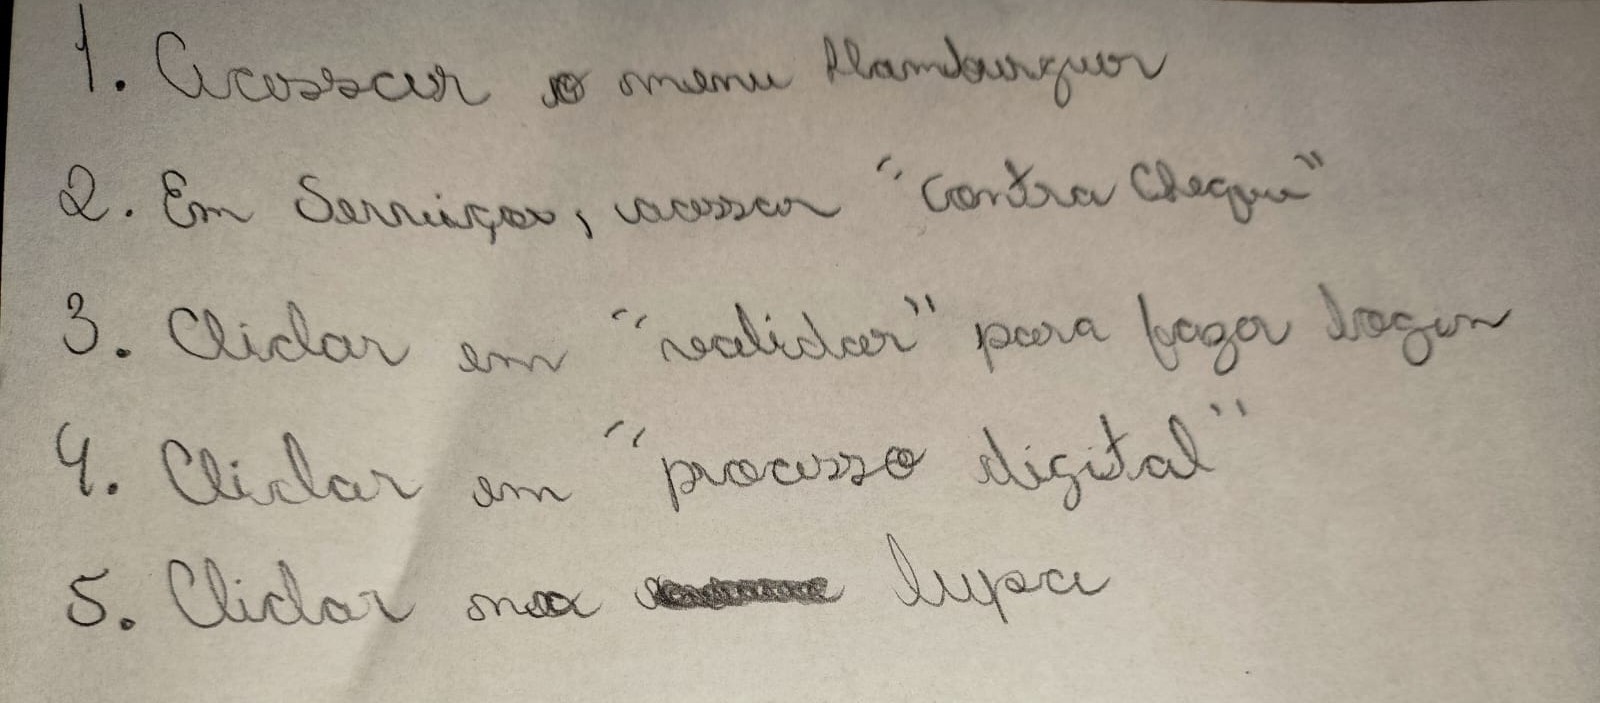 1. Acessar o menu Hamburguer
2. Em Serviços, acessar "Contra Cheque"
3. Clicar em "validar" para fazer login
4. Clicar em "processo digital"
5. Clicar na lupa